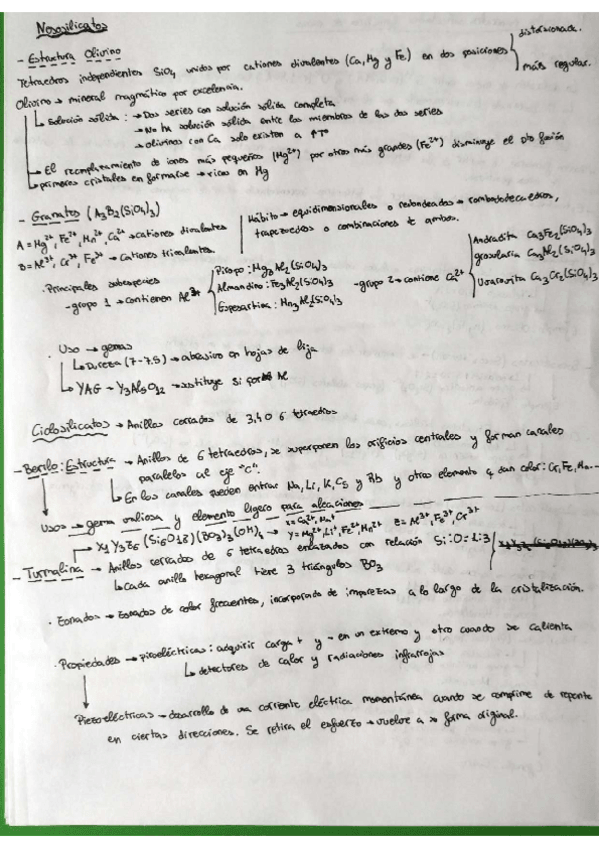 Nesosilicatos
- Estructura Olivino
Tetraedros independientes SiO4 unidos por cationes divalentes (Ca, Mg y Fe) en dos posiciones { distorsionada.
más regular.
Olivino → mineral magmático por excelencia.
Solución sólida: → Dos series con solución sólida completa
→ No ha solución sólida entre los miembros de las dos series
→ olivinos con Ca solo existen a ↑Tª
→ El reemplazamiento de iones más pequeños (Mg2+) por otros más grandes (Fe2+) disminuye el pto fusión
→ primeros cristales en formarse → ricos en Mg
- Granates (A3B2(SiO4)3)
A = Mg2+, Fe2+, Mn2+, Ca2+ → cationes divalentes
B = Al3+, Cr3+, Fe3+ → cationes trivalentes.
Hábito → equidimensionales o redondeados → rombododecaedros,
trapezoedros o combinaciones de ambos.
· Principales subespecies
- grupo 1 → contienen Al3+
Piropo: Mg3Al2(SiO4)3
Almandino: Fe3Al2(SiO4)3
Espesartina: Mn3Al2(SiO4)3
- grupo 2 → contiene Ca2+
Andradita Ca3Fe2(SiO4)3
grosularia Ca3Al2(SiO4)3
Uvarovita Ca3Cr2(SiO4)3
· Uso → gemas
↳ Dureza (7-7.5) → abrasivo en hojas de lija
↳ YAG - Y3Al5O12 → sustituye Si por Al
Ciclosilicatos → Anillos cerrados de 3, 4 o 6 tetraedros
- Berilo: Estructura → Anillos de 6 tetraedros, se superponen los orificios centrales y forman canales
paralelos al eje "c".
↳ En los canales pueden entrar Na, Li, K, Cs y Rb y otros elemento q dan color: Cr, Fe, Mn...
Usos → gema valiosa y elemento ligero para aleaciones
→ X1 Y3 Z6 (Si6O18)(BO3)3(OH)4 → X = Ca2+, Na+
Y = Mg2+, Li+, Fe2+, Mn2+ Z = Al3+, Fe3+, Cr3+
- Turmalina → Anillos cerrados de 6 tetraedros enlazados con relación Si:O = 1:3
↳ Cada anillo hexagonal tiene 3 triángulos BO3
· Zonados → Zonados de color frecuentes, incorporado de impurezas a lo largo de la cristalización.
· Propiedades → piroeléctricas: adquirir carga + y - en un extremo y otro cuando se calienta
↳ detectores de calor y radiaciones infrarrojas
Piezoeléctricas → desarrollo de una corriente eléctrica momentánea cuando se comprime de repente
en ciertas direcciones. Se retira el esfuerzo → vuelve a su forma original.